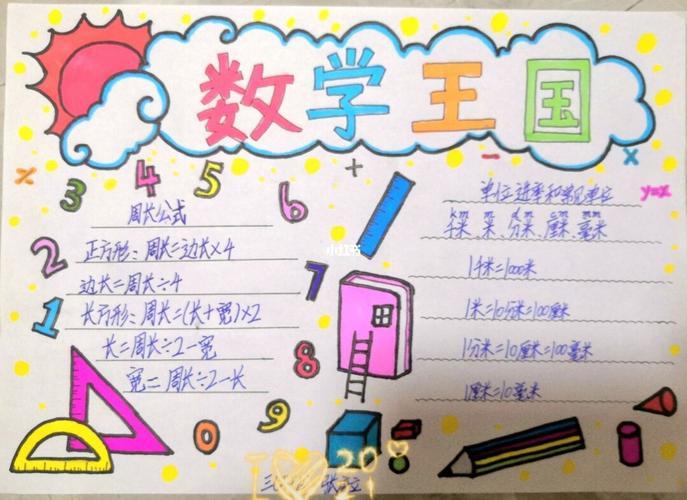 数学王国
3 4 5 6
+ − × y=x
周长公式
正方形:周长=边长×4
边长=周长÷4
长方形:周长=(长+宽)×2
长=周长÷2-宽
宽=周长÷2-长
2
1
7
8
9
0
单位进率和常见单位
km m dm cm mm
千米、米、分米、厘米、毫米
1千米=1000米
1米=10分米=100厘米
1分米=10厘米=100毫米
1厘米=10毫米
小红书
三